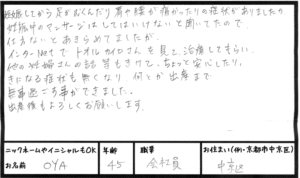 妊娠してから足がむくんだり肩や腰が痛かったりの症状がありました。
妊娠中のマッサージはしてはいけないと聞いてたので、
仕方ないとあきらめてましたが、
インターNetでトオルカイロさんを見て、治療してもらい、
他の妊婦さんの話等もきけて、ちょっと安心したり、
きになる症状も無くなり、何とか出産まで
無事過ごす事ができました。
出産後もよろしくお願いします。
ニックネームやイニシャルもOK
お名前 OYA
年齢 45
職業 会社員
お住まい(例・京都市中京区)
中京区